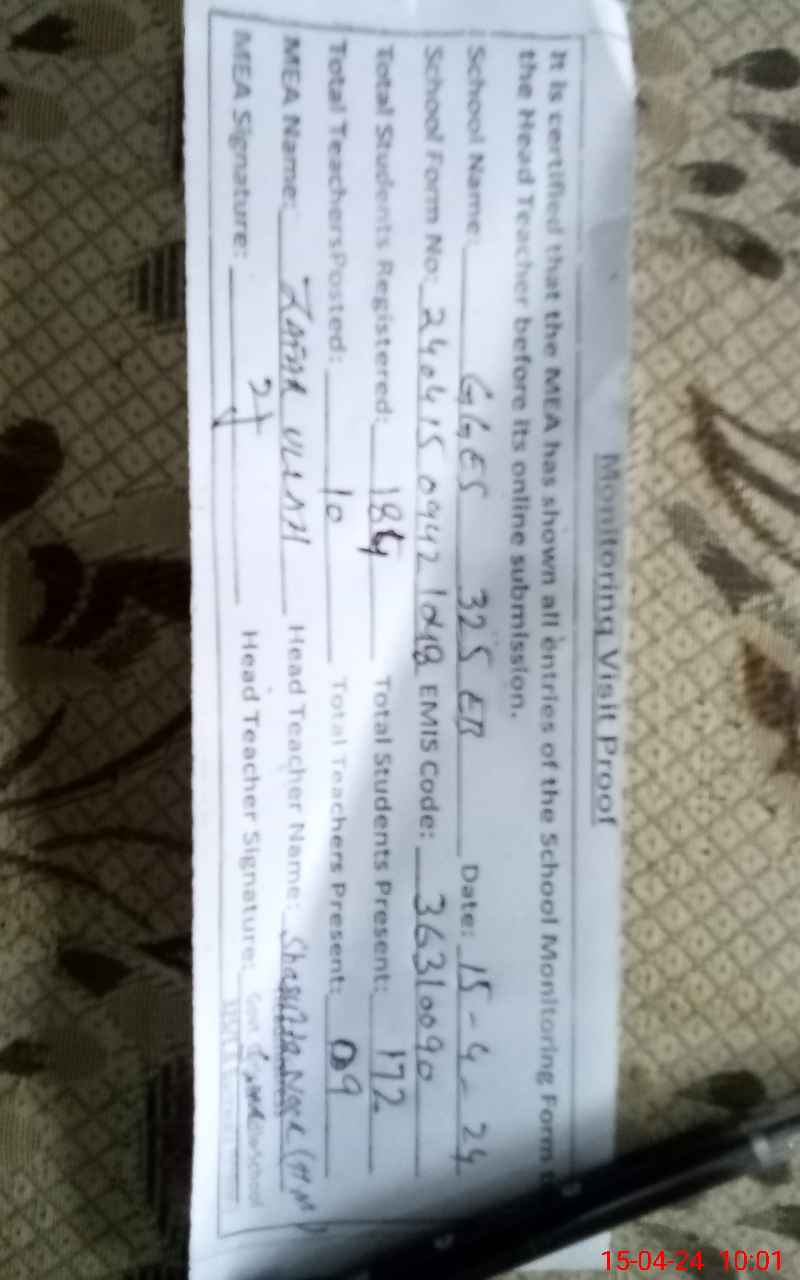 Monitoring Visit Proof
It is certified that the MEA has shown all entries of the School Monitoring Form t
the Head Teacher before its online submission.
School Name: GGES 325 EB Date: 15-4-24
School Form No: EMIS Code: 36310090
Total Students Registered: 184 Total Students Present: 172
Total TeachersPosted: 10 Total Teachers Present: 09
MEA Name: ZAFAR ULLAH Head Teacher Name:
MEA Signature: Head Teacher Signature:
15-04-24 10:01